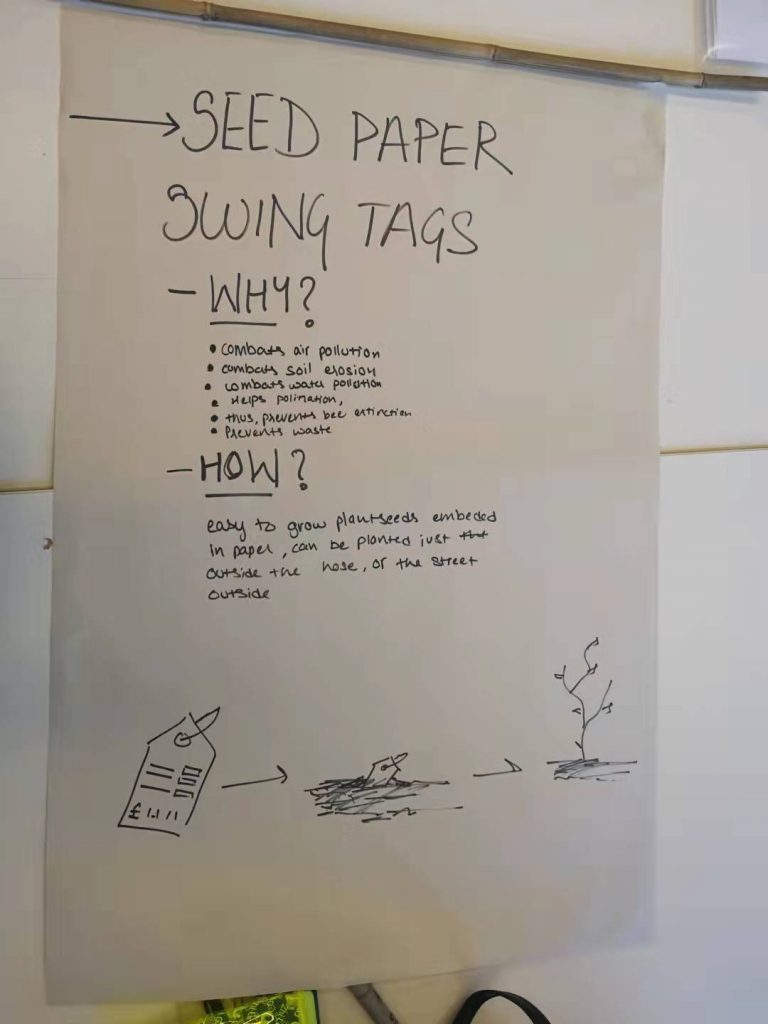 SEED PAPER
SWING TAGS
- WHY?
• combats air pollution
• combats soil erosion
• combats water pollution
• Helps polination,
• thus, prevents bee extinction
• Prevents waste
- HOW?
easy to grow plantseeds embeded
in paper, can be planted just
outside the hose, or the street
outside
£1.11